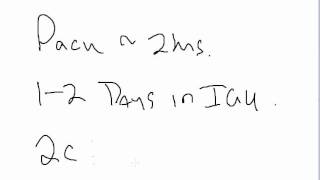 Pacu ~ 2hrs.
1-2 Days in ICU.
2c :